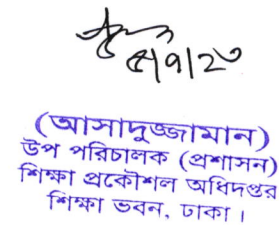 ৫/৭/২৩
(আসাদুজ্জামান)
উপ পরিচালক (প্রশাসন)
শিক্ষা প্রকৌশল অধিদপ্তর
শিক্ষা ভবন, ঢাকা।